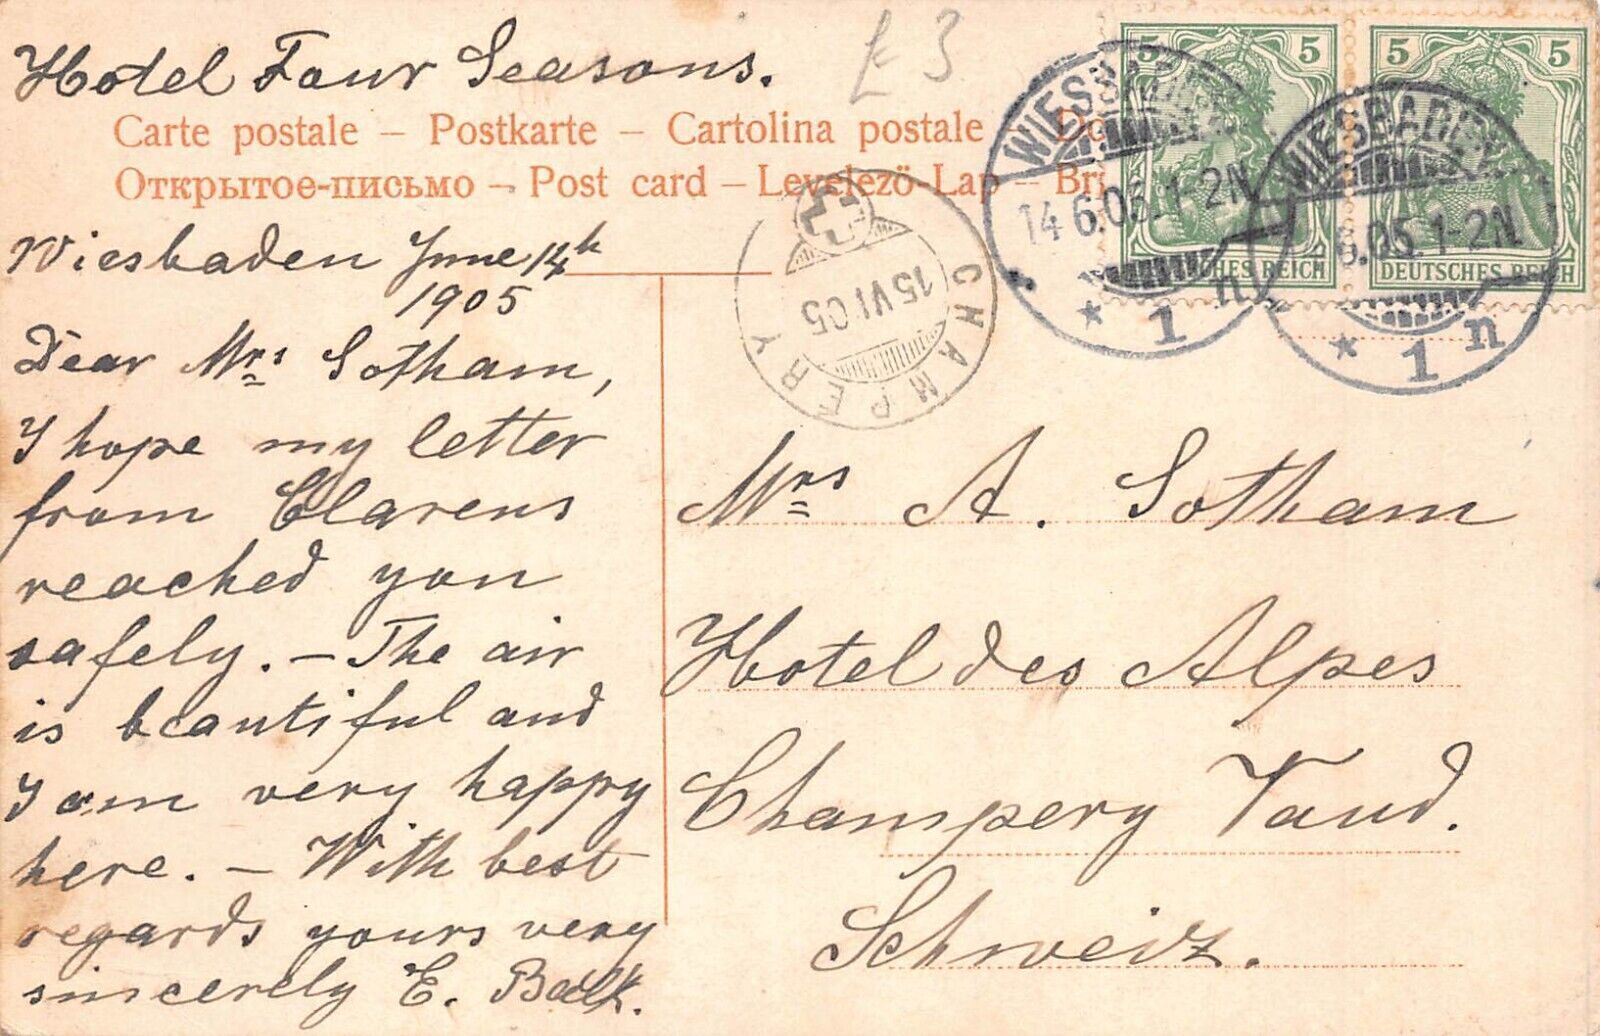 Hotel Four Seasons.
£3
Carte postale – Postkarte – Cartolina postale
Открытое-письмо – Post card – Levelezö-Lap – Bri
Wiesbaden June 14th
1905
Dear Mrs Sotham,
I hope my letter
from Clarens
reached you
safely. – The air
is beautiful and
I am very happy
here. – With best
regards yours very
sincerely E.
5 5
DEUTSCHES REICH
5 5
DEUTSCHES REICH
WIESBADEN
14.6.05.1-2N
* 1 n
WIESBADEN
6.05.1-2N
* 1 n
CHAMPERY
15 VI 05
Mrs A. Sotham
Hotel des Alpes
Champery Vaud.
Schweiz.